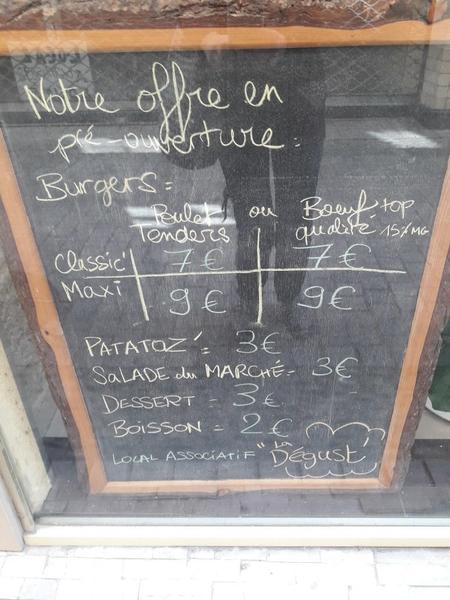 Notre offre en
pré-ouverture :
Burgers =
Poulet Tenders ou Boeuf top qualité 15% MG
Classic' 7€ 7€
Maxi 9€ 9€
PATATOZ' = 3€
SALADE du MARCHÉ = 3€
DESSERT = 3€
BOISSON = 2€
LOCAL ASSOCIATIF "La Dégust'